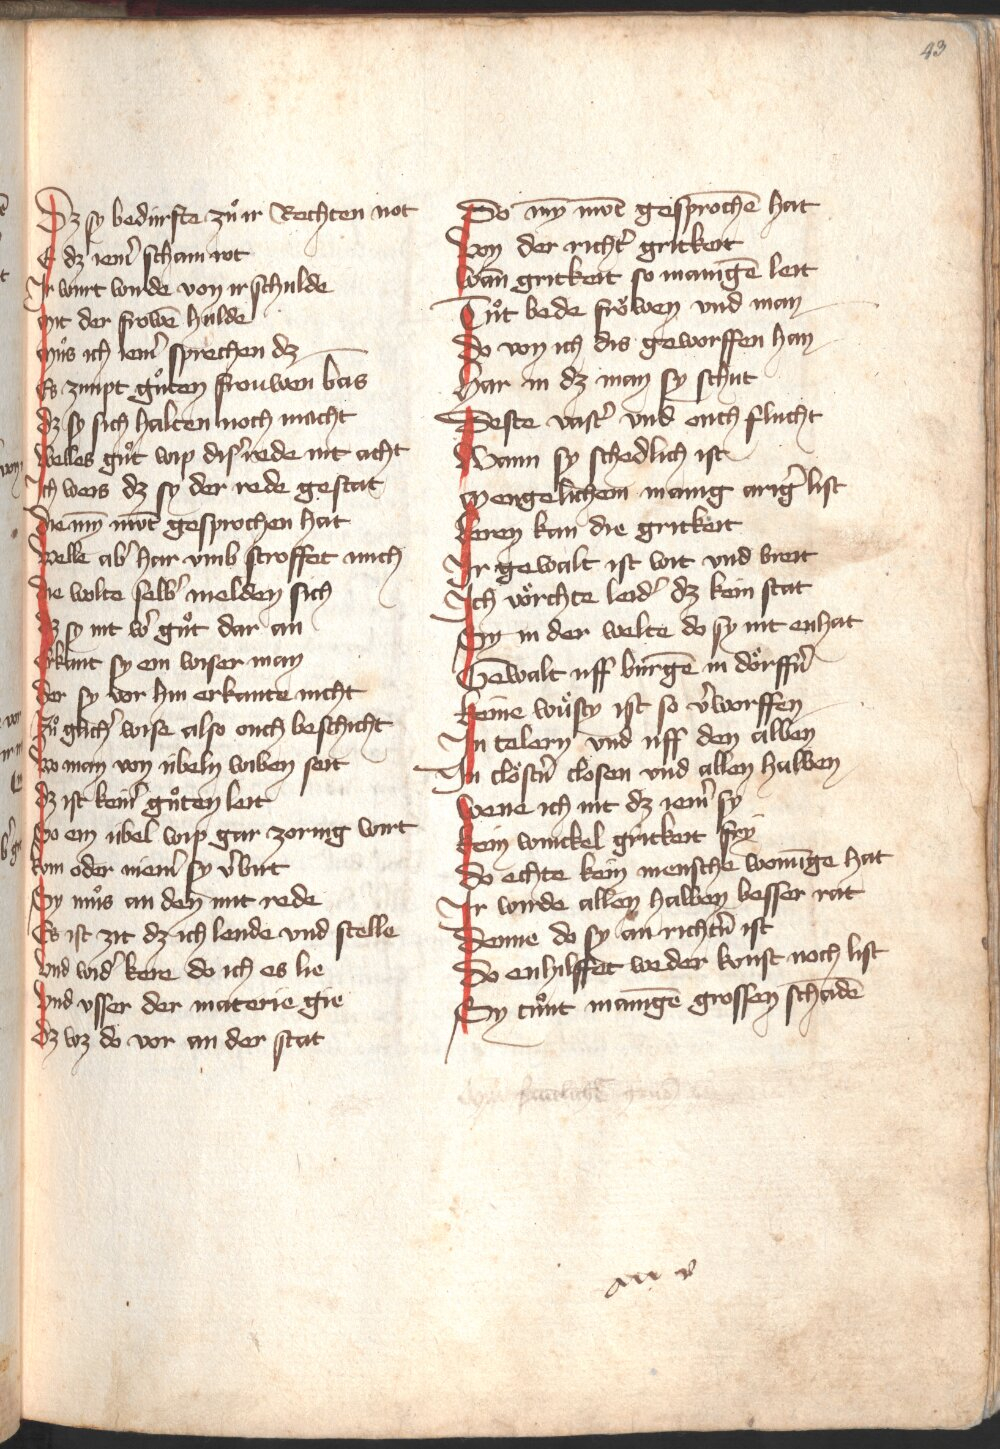 43
Dz sy bedürfte zuͦ ir Rechten not
E dz iem̄ scham rot
Ir wurt wurde von ir schulde
mit der frowē hulde
muͦs ich iem̄ sprechen dz
Es zimpt guͦten frouwen bas
dz sy sich halten noch macht
welles guͦt wip dis̄ rede nit acht
Ich weis dz sy der rede gestat
die my̅ mūt gesprochen hat
welle ab̄ har vmb stroffet mich
die wolte selb̄ melden sich
dz sy nit w̄ guͦt dar an
erkant sy ein wiser man
der sy vor hin erkante nicht
Zuͦ glich̄ wise also ouch beschicht
wo man von übeln wiben seit
dz ist kein̄ guͦten leit
wo ein übel wip gar zornig wurt
kum oder niem̄ sy v̄birt
Sy muͦs an den mit rede
Es ist zit dz ich lende vnd stelle
vnd wid̄ kere do ich es lie
vnd vsser der materie gie
dz wz do vor an der stat
Do my̅ mūt gesprochē hat
Von der richt̄ gritkeit
wan̄ gritkeit so manigē leit
Tuͦt bede froͤwen vnd man
do von ich dis geworffen han
har in dz man sy schut
Deste vast̄ vnd ouch flucht
Wann sy schedlich ist
Mengelichem manig ariḡ list
leren kan die gritkeit
Ir gewalt ist wit vnd breit
Ich voͤrchte leid̄ dz kein stat
Sy in der welte do sy nit enhat
Gewalt uff bürgē in doͤrffn̄
keine wuͤsty ist so v̄worffen
In telern vnd uff den alben
In cloͤstn̄ closen vnd allen halben
wene ich nit dz iem̄ sy
kein winckel gritkeit fry
do echte kein mensche wonūge hat
Ir wirde allen halben besser rat
Denne do sy an richtn̄ ist
do enhilffet weder kunst noch list
Sy tuͦnt manigē grossen schadē